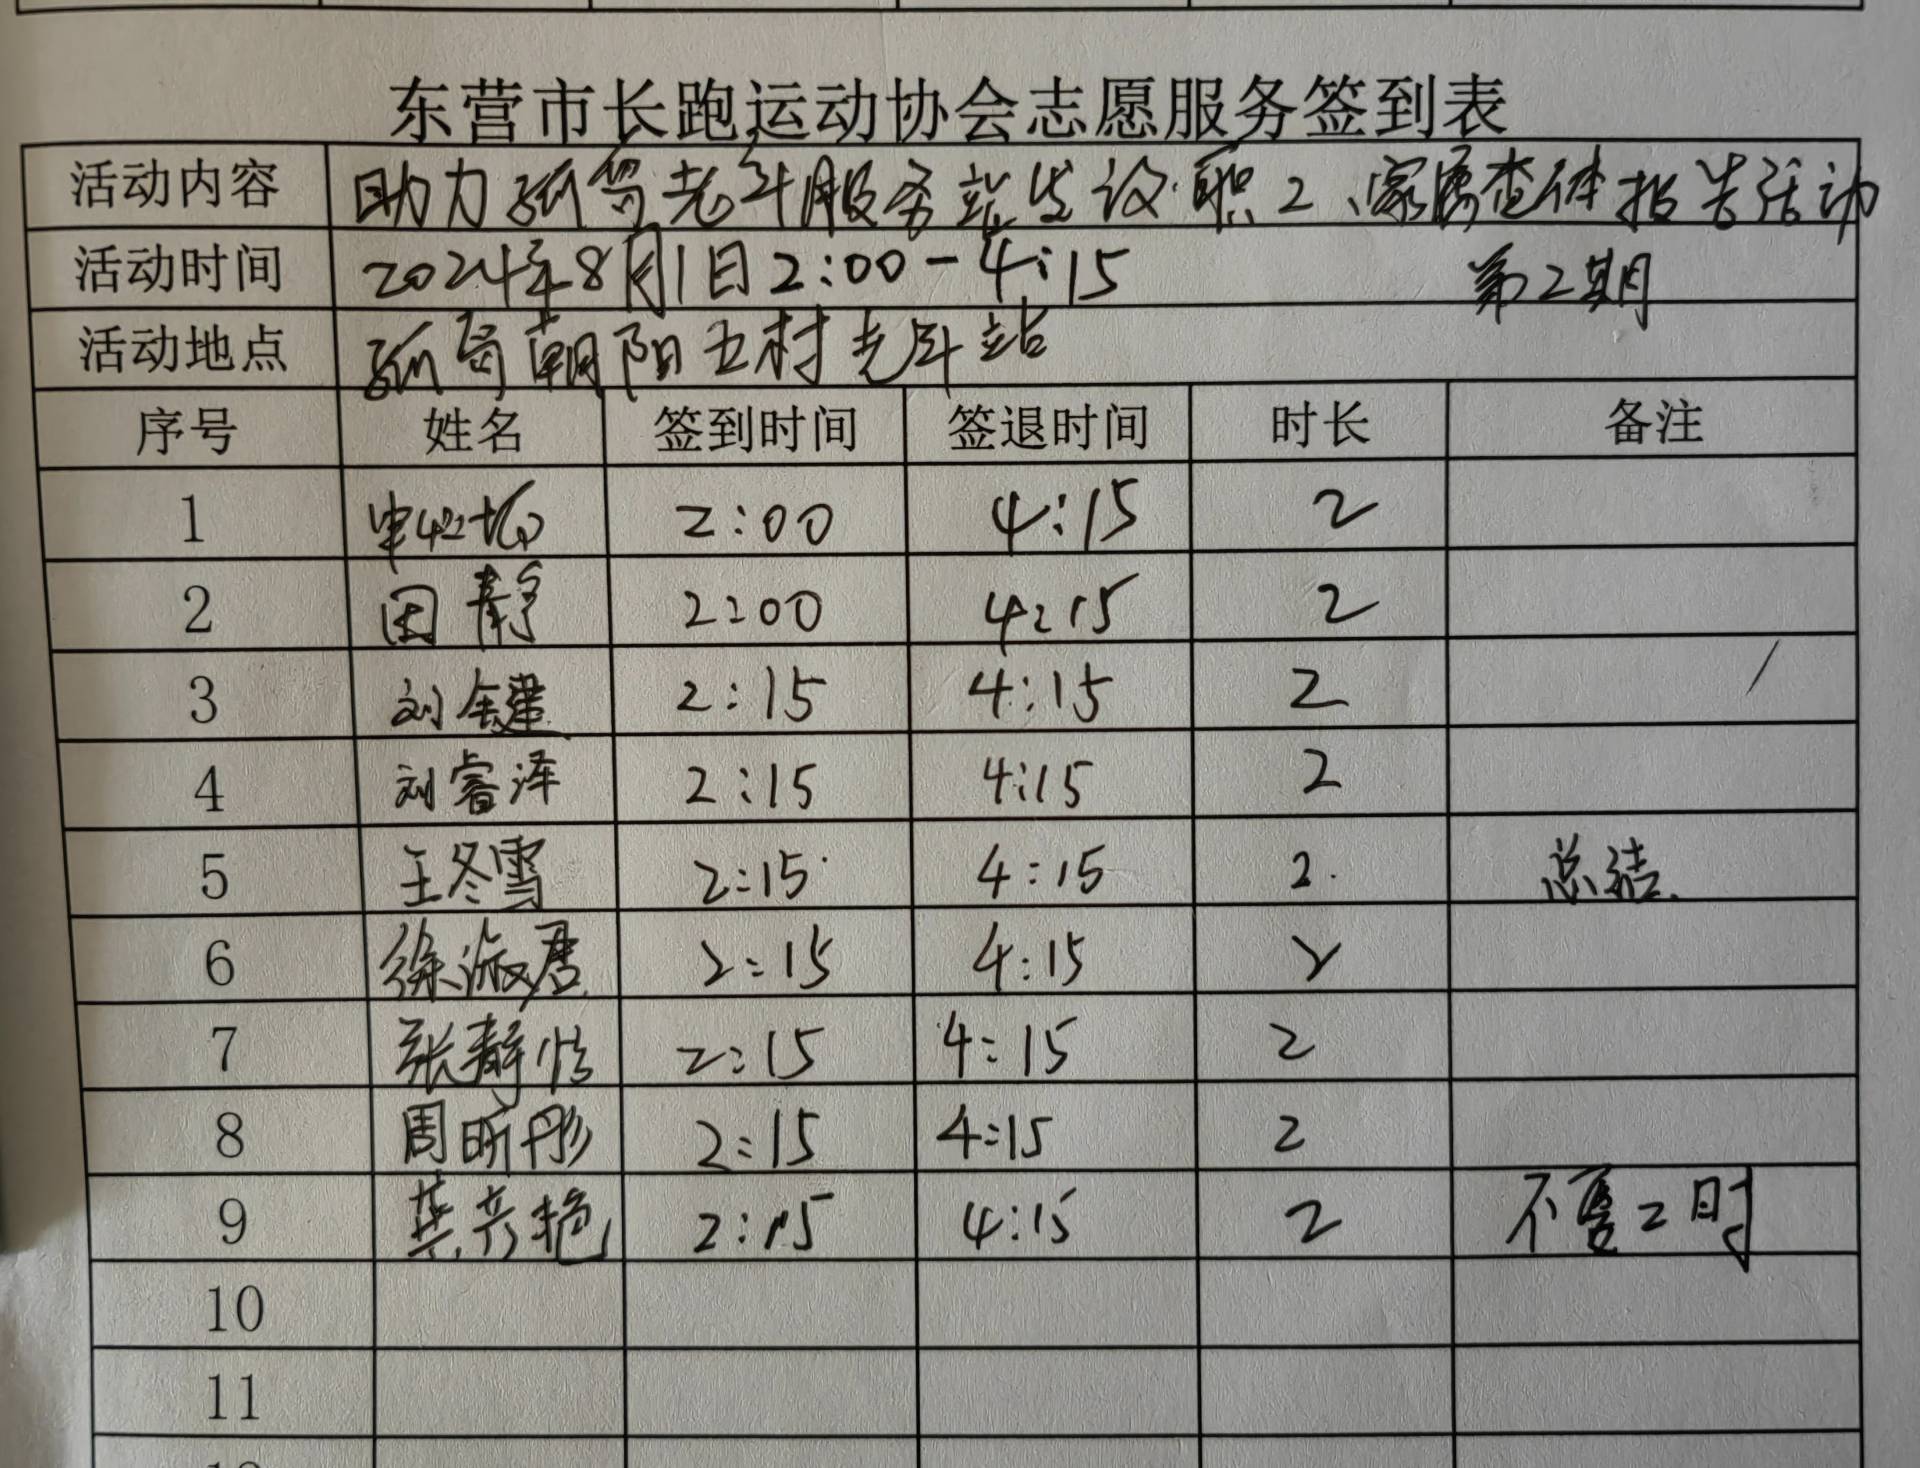 东营市长跑运动协会志愿服务签到表
活动内容 助力孤岛老年服务站发放职工、家属查体报告活动
活动时间 2024年8月1日2:00-4:15 第2期
活动地点 孤岛朝阳五村老年站
序号 姓名 签到时间 签退时间 时长 备注
1 2:00 4:15 2
2 田静 2:00 4:15 2
3 刘全建 2:15 4:15 2
4 刘睿泽 2:15 4:15 2
5 王冬雪 2:15 4:15 2 总结
6 徐淑君 2:15 4:15 2
7 张静怡 2:15 4:15 2
8 周昕彤 2:15 4:15 2
9 2:15 4:15 2 不要2时
10
11